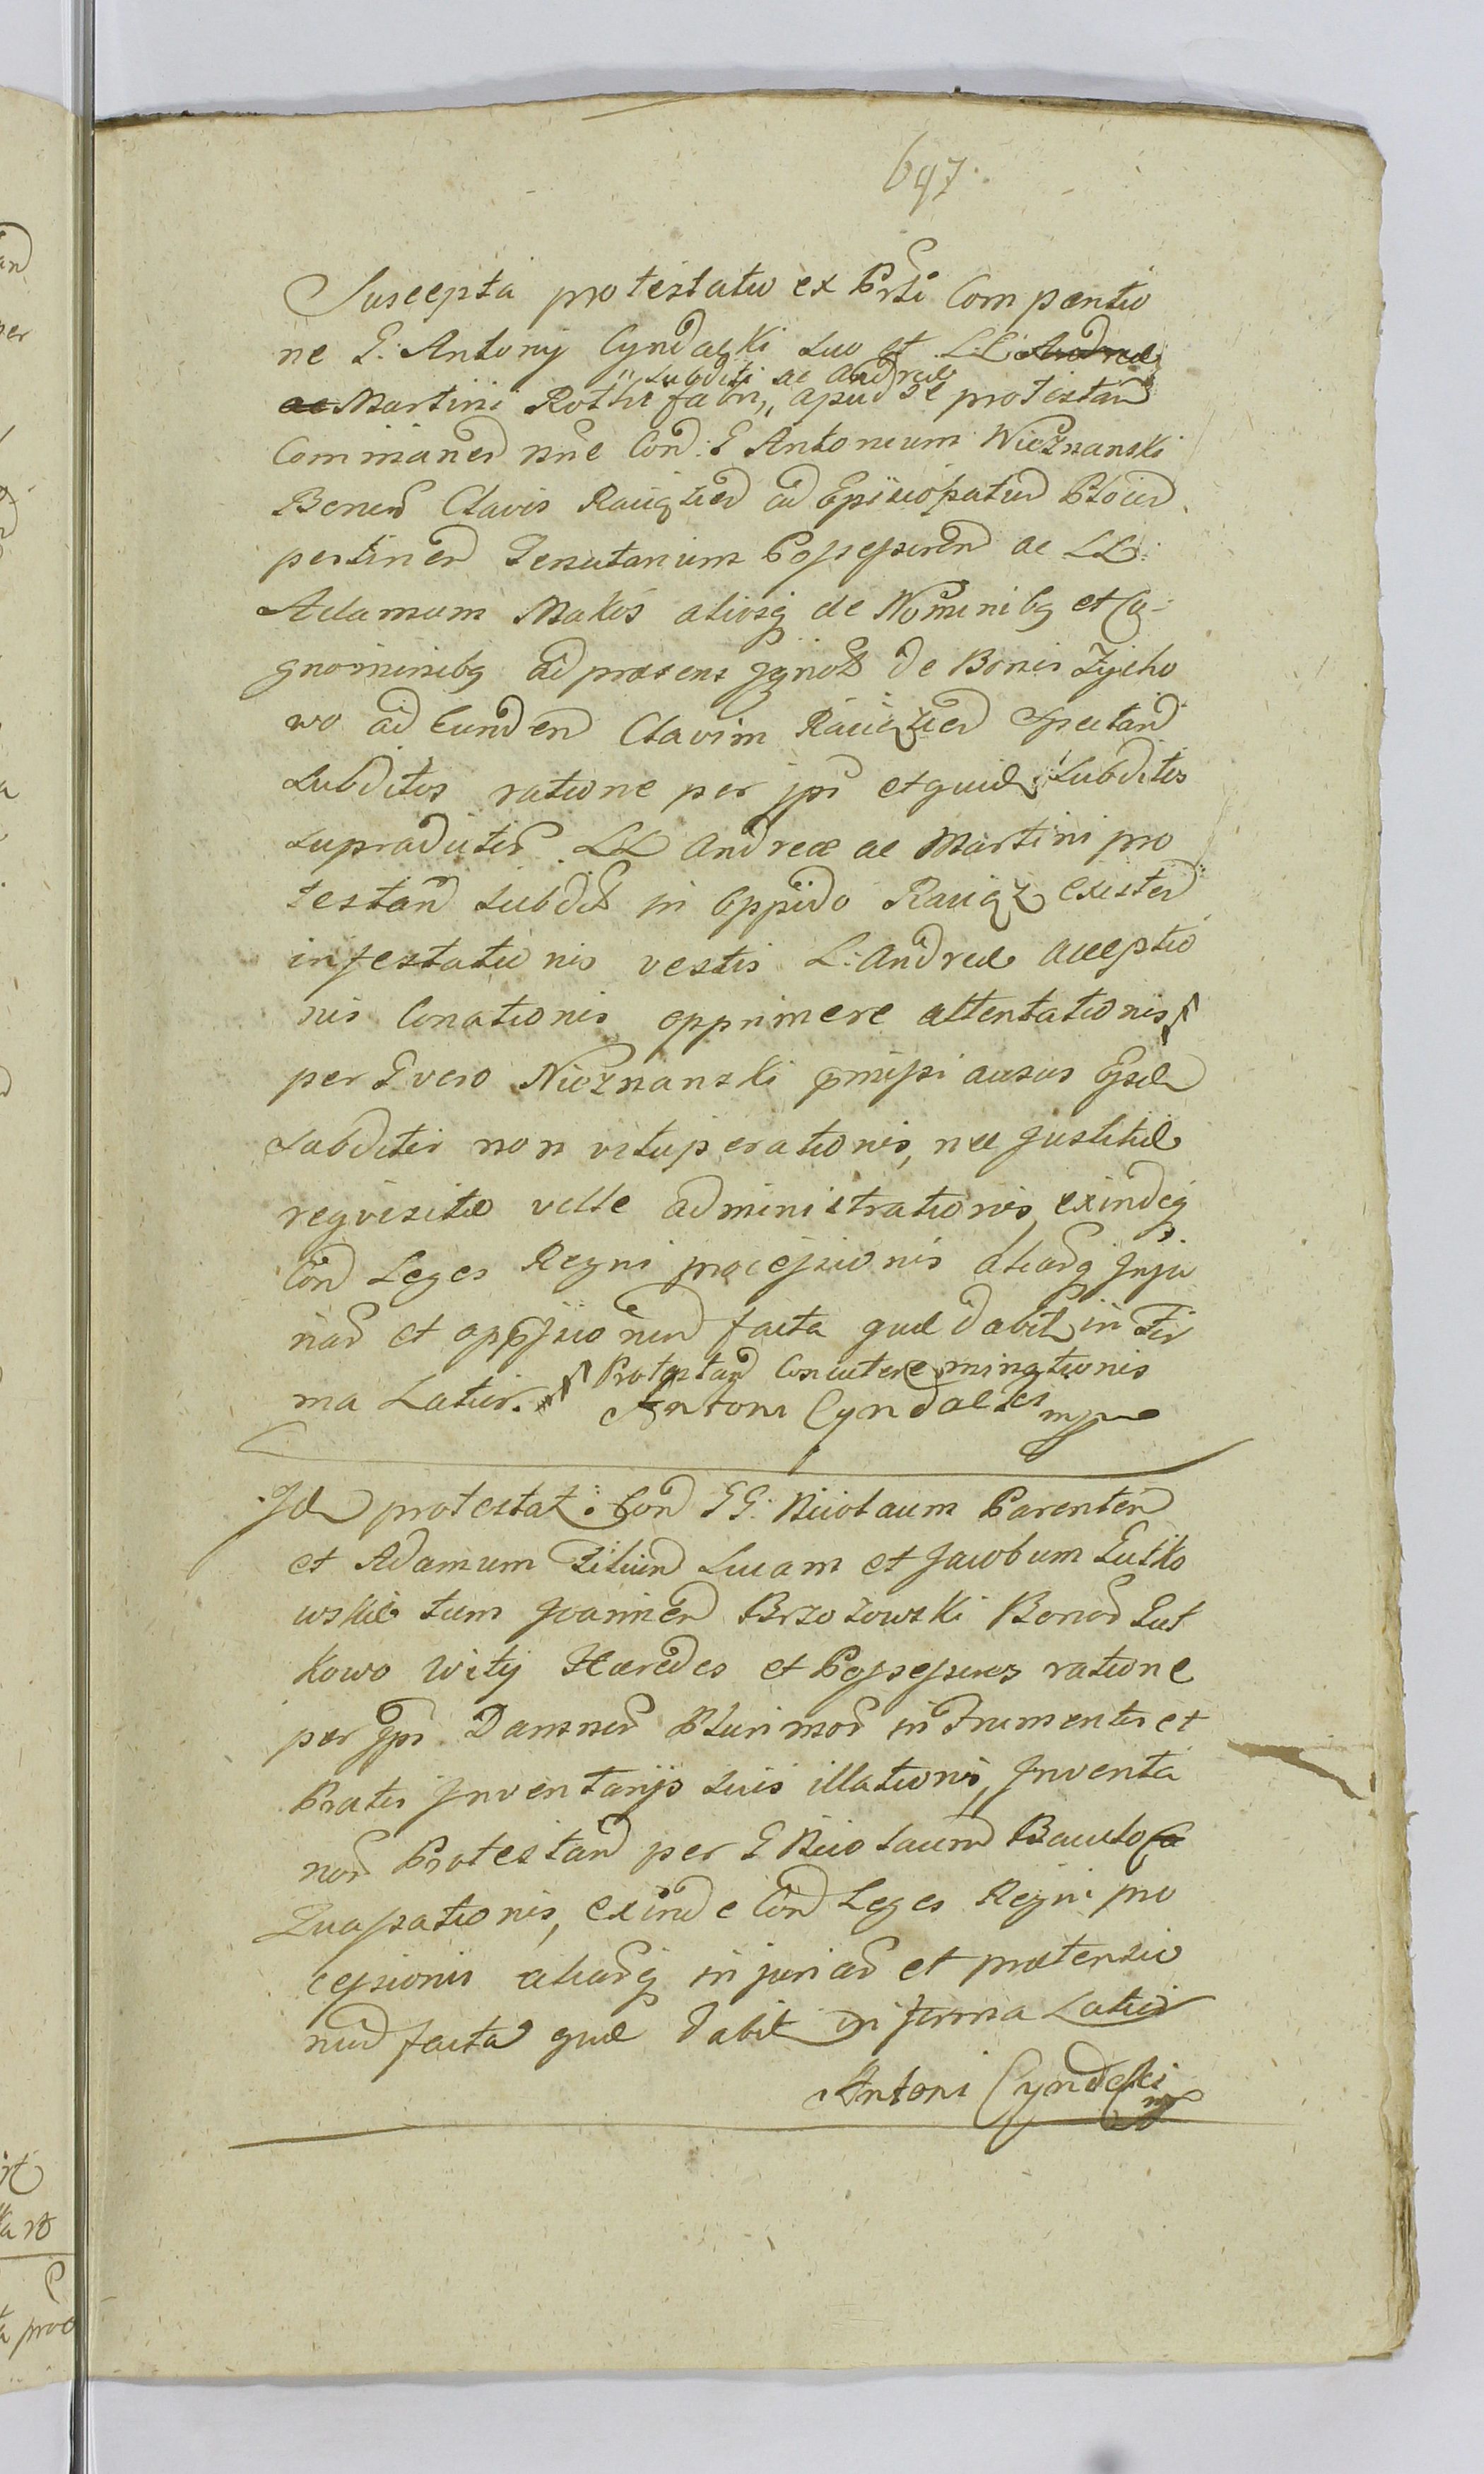 697.
Suscepta protestatio ex Prsti Compantio
ne G: Antonij Cyndalski suo et LL Andreæ
subditi ac Andreæ
ac Martini Rothi fabri, apud se protestan
Commanen nne Con: G Antonium Nieznanski
Bonm Clavis Raciązien ad Episcopatum Plocen
pertinen Tenutarium Possessoren ac LL:
Adamum Makos aliosq de Nominibq et Co-
gnominibq ad præsens Ignot de Bonis Zycho
wo ad Eunden Clavim Raciązien Spectan
Subditos ratione per ips et quid Subditos
supradictos LL Andreæ ac Martini pro
testan subdit in Oppido Raciąz existen
infestationis vestis L: Andreæ acceptio
nis Conationis opprimere attentationis
per G vero Nieznanski præmissi ausus Ejsd
subditis non vituperationis, nec Justitiæ
reqvisitæ velle administrationis, exindeq
Con Leges Regni processionis aliarq Inju
riar et oppssionum facta quæ dabit in For
ma Latior. Protestan Concutere minationis
Antoni Cyndalski mpp
Id protestat: Con GG: Nicolaum Parentem
et Adamum Filium Lucam et Jacobum Lutko
wskie tum Joannen Brzozowski Bonor Lut
kowo Wity Hæredes et Possessores ratione
per Ips Damnor Plurimor in Frumentis et
Pratis Inventarijs suis illationis, Inventa
rior Protestan per G Nicolaum Baculo
Quassationis, exinde Con Leges Regni pro
cessionis aliarq injuriar et prætensio
num facta quæ dabit in forma Latior
Antoni Cyndalski
mp